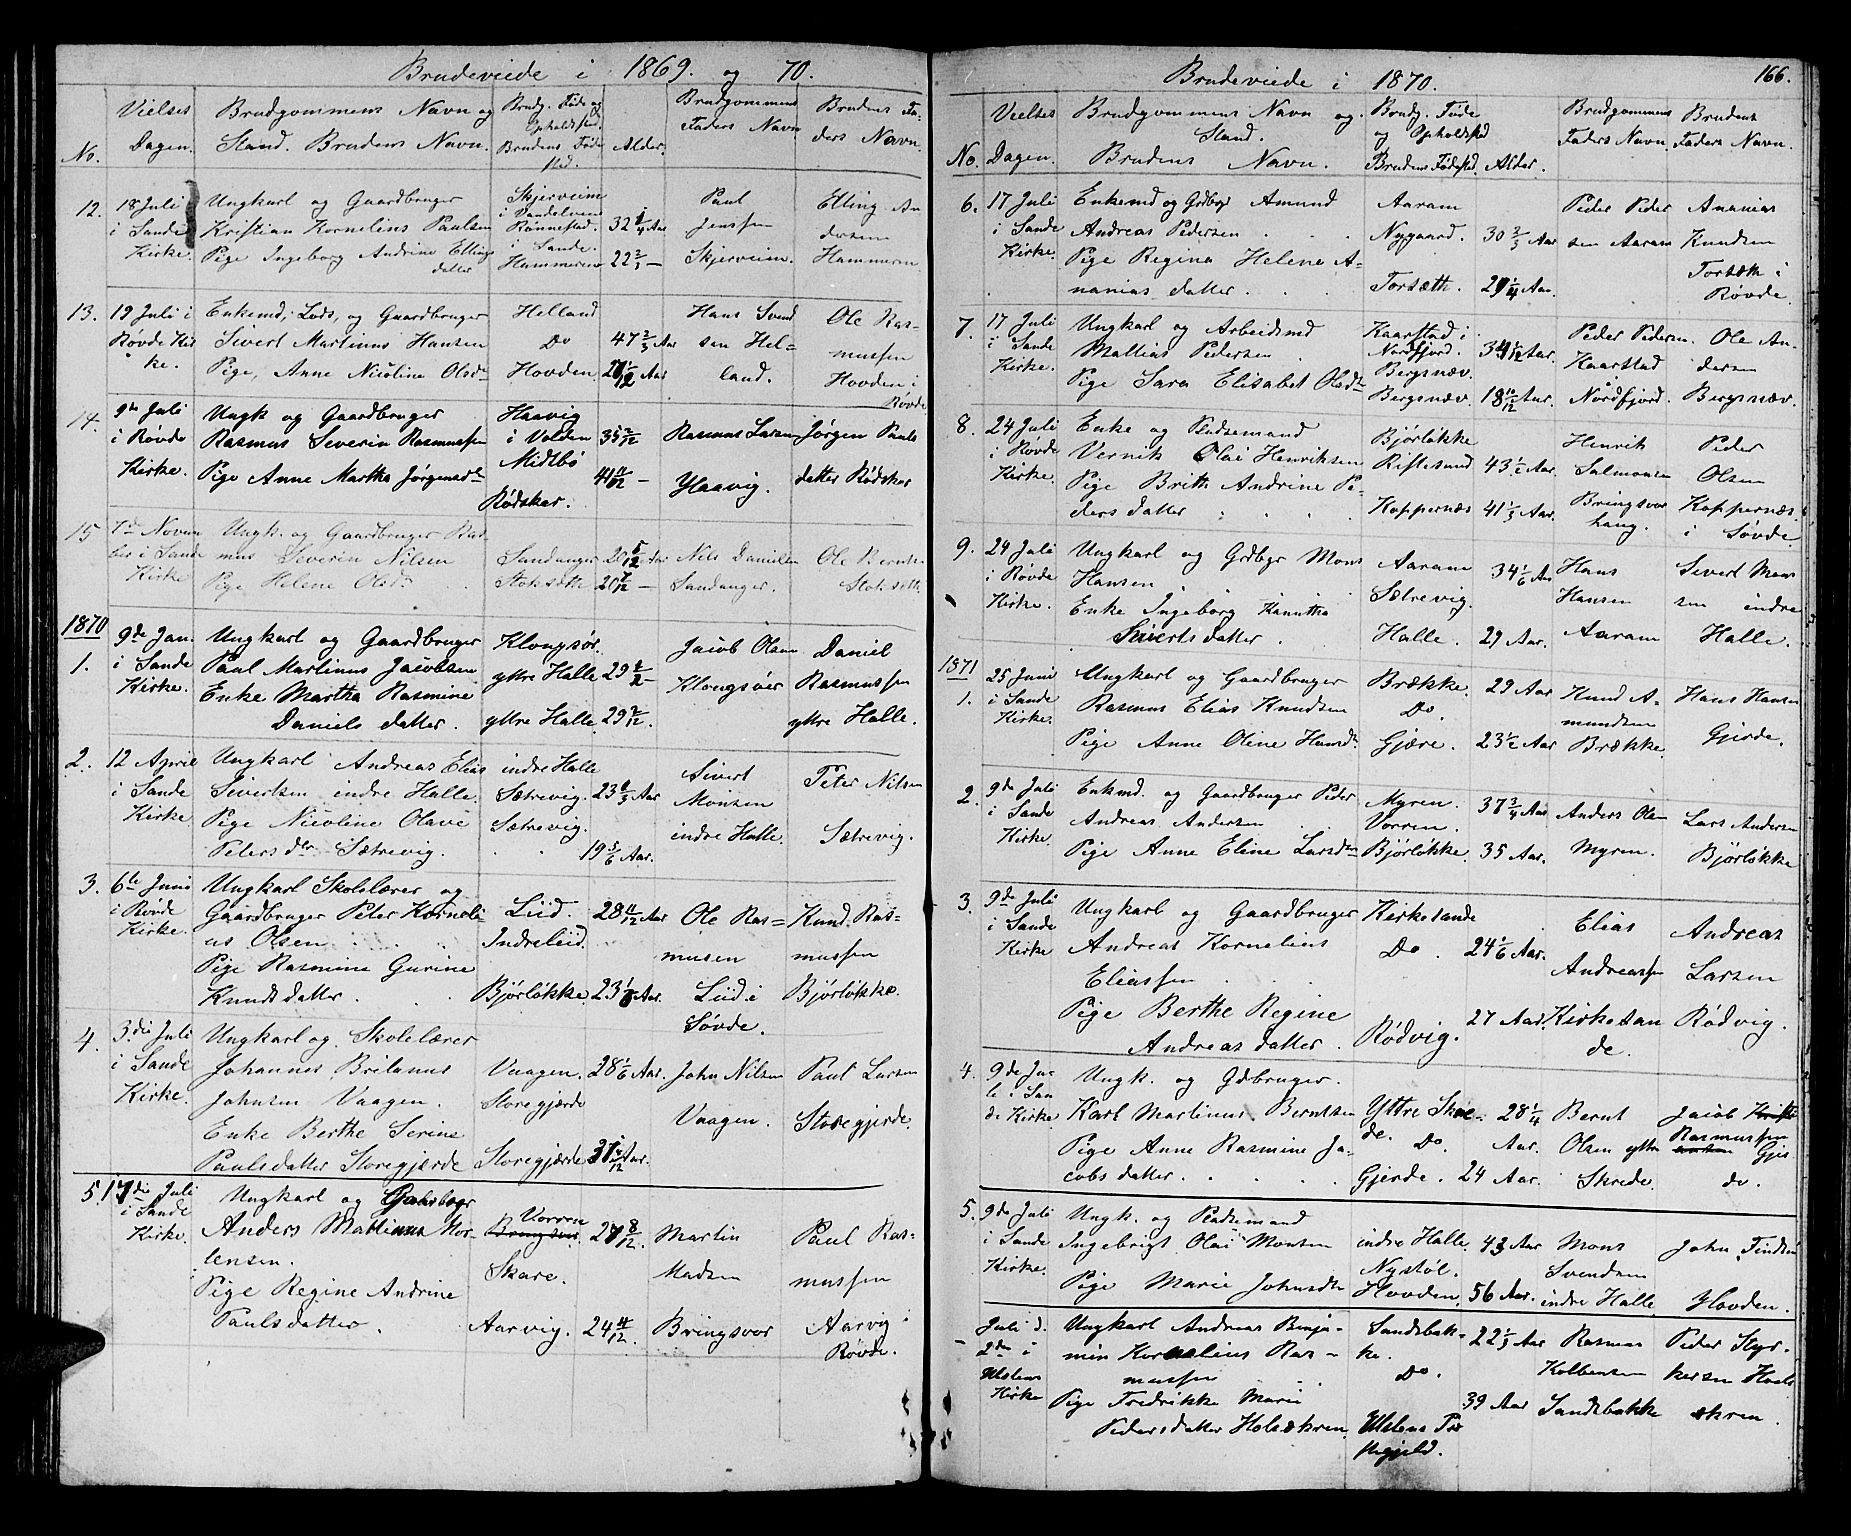 Brudeviede i 1869. og 70.
No.
Vielses Dagen.
Brudgommens Navn og Stand. Brudens Navn.
Brudg. Føde og Opholdsted. Brudens Føde sted.
Alder.
Brudgommens Faders Navn
Brudens Faders Navn.
12. 18 Juli i Sande Kirke.
Ungkarl og Gaardbruger
Kristian Kornelius Paulsen
Pige Ingeborg Andrine Ellings
datter
Skjerveim i Vandelven
Rønnestad.
i Sande.
Hammeren
32 1/4 Aar
22 2/3 —
Paul
Jenssen
Skjerveim.
Elling An
dersen
Hammeren
13. 19 Juli i Røvde Kir
ke.
Enkemd, Lods, og Gaardbruger
Sivert Martinus Hansen
Pige, Anne Nicoline Olsdr
Helland
Do
Hovden.
47 2/3 Aar
Aar
Hans Svend
sen Hel=
land.
Ole Ras-
mussen
Hovden i
Røvde
14. 9de Juli
i Røvde
Kirke.
Ungk og Gaardbruger
Rasmus Severin Rasmussen
Pige Anne Martha Jørgensdr
Haavig
i Volden
Midtbø
Rødskar.
35 2/12
41 11/12 —
Rasmus Larsen
Haavig.
Jørgen Pauls
datter Rødskar
15 7de Novem
ber i Sande
Kirke
Ungk. og Gaardbruger Ras
mus Severin Nilsen
Pige Helene Olsdr
Sandanger
Stoksæth
Aar
Nils Danielsen
Sandanger.
Ole Berntsen
Stoksæth
1870
1. 9de Jan.
i Sande
Kirke.
Ungkarl og Gaardbruger
Paul Martinus Jacobsen
Enke Martha Rasmine
Daniels datter.
Klongsør.
yttre Halle
yttre Halle.
Jacob Olsen
Klongsøer
Daniel
Rasmussen
yttre Halle.
2. 12 April
i Sande
Kirke
Ungkarl Andreas Elias
Sivertsen indre Halle.
Pige Nicoline Olave
Peters dtr Sætrevig.
indre Halle
Sætrevig.
Sætrevig.
Aar
19 5/6 Aar.
Sivert
Monsen
indre Halle.
Peter Nilsen
Sætrevig.
3. 6te Juni
i Røvde
Kirke.
Ungkarl Skolelærer og
Gaardbruger Peter Korneli-
us Olsen
Pige Rasmine Gurine
Knudsdatter.
Liid.
Indreliid.
Bjørløkke.
28 11/12 Aar
Aar.
Ole Ras=
musen
Liid i
Søvde.
Knud. Ras=
mussen
Bjørløkke.
4. 3die Juli
i Sande
Kirke.
Ungkarl og Skolelærer
Johannes Brilanus
Johnsen Vaagen.
Enke Berthe Serine
Paulsdatter Storegjærde
Vaagen.
Storegjærde
Storegjærde
28 1/6 Aar.
Aar.
John Nilsen
Vaagen.
Paul Larsen
Storegjerde.
5. 17die Juli
i Sande
Kirke.
Ungkarl og Gaardbrgr
Anders Mathinus Mor-
tensen.
Pige Regine Andrine
Paulsdatter.
Vorren
Skare.
Aarvig.
24 11/12.
Martin
Madsen
Bringsvor
Paul Ras-
mussen
Aarvig i
Røvde.
166.
Brudeviede i 1870.
No.
Vielses
Dagen.
Brudgommens Navn og
Stand.
Brudens Navn.
Brudg. Føde
og Opholdsted
Brudens Fødested.
Alder.
Brudgommens
Faders Navn
Brudens
Faders Navn.
6. 17 Juli
i Sande
Kirke.
Enkemd og Grdbgr Amund
Andreas Pedersen
Pige Regina Helene A-
nanias datter
Aaram
Nygaard.
Torsæth.
30 2/3 Aar
Aar.
Peder Peder
sen Aaram
Ananias
Knudsen
Torsæth i
Røvde.
7. 17 Juli
i Sande
Kirke.
Ungkarl og Arbeidsmd
Mathias Pedersen
Pige Sara Elisabet Olsdtr
Kaarstad i
Nordfjord.
Bergsnæv.
Bergsnæv.
Aar.
18 11/12 Aar.
Peder Pedersen.
Kaarstad
Nordfjord.
Ole An-
dersen
Bergsnæv.
8. 24 Juli
i Røvde
Kirke.
Enke og Pladsemand
Vernik Olai Henriksen
Pige Brith Andrine Pe-
ders datter
Bjørløkke
Riftesund
Koppernæs
43 1/2 Aar.
41 1/3 Aar.
Henrik
Salmonsen
Bringsvor
haug.
Peder
Olsen
Koppernæs.
i Søvde.
9. 24 Juli
i Røvde
Kirke.
Ungkarl og Grdbgr Mons
Hansen
Enke Ingeborg Kanutha
Siverts datter.
Aaram
Sætrevig.
Halle.
34 1/6 Aar
29 Aar.
Hans
Hansen
Aaram
Sivert Mon
sen indre
Halle.
1871
1. 25 Juni
i Sande
Kirke.
Ungkarl og Gaardbruger
Rasmus Elias Knudsen
Pige Anne Oline Hansdtr
Brække.
Do.
Gjære.
29 Aar
23 1/2 Aar
Knud A-
mundsen
Brække.
Hans Hansen
Gjerde.
2. 9de Juli
i Sande
Kirke.
Enkmd. og Gaardbruger Peder
Andreas Andersen
Pige Anne Eline Larsdtr
Myren.
Vorren.
Bjørløkke
37 3/4 Aar
35 Aar.
Anders Olsen
Myren.
Lars Andersen
Bjørløkke
3. 9de Juli
i Sande
Kirke
Ungkarl og Gaardbruger
Andreas Kornelius
Eliassen
Pige Berthe Regine
Andreas datter.
Kirkesande
Do.
Rødvig.
24 1/6 Aar.
27 Aar.
Elias
Andreassen
Kirkesan
de.
Andreas
Larsen
Rødvig.
4. 9de Ju
li i San
de Kirke
Ungk. og Gdbruger.
Karl Martinus Berntsen
Pige Anne Rasmine Ja-
cobsdatter.
Yttre Skre-
de. Do.
Gjerde.
28 1/4
Aar.
24 Aar.
Bernt
Olsen yttre
Skrede.
Jacob
Rasmussen
Gjer
de.
5. 9de Juli
i Sande
Kirke.
Ungk. og Pladsemand
Ingebrigt Olai Monsen
Pige Marie Johnsdtr
indre Halle.
Nystøl.
Hovden.
43 Aar
56 Aar.
Mons
Svendsen
indre Halle
John Findsen
Hovden.
— Juli d.
2den i
Ulstens
Kirke
Ungkarl Andreas Benja-
min Kornelius Ras-
mussen
Pige Fredrikke Marie
Pedersdatter Holsekren
Sandsbak-
ke.
Do.
Ulstens Præ
stegjeld.
22 1/3 Aar
39 Aar
Rasmus
Kolbensen
Sandsbakke
Peder Styr-
kersen Hols
ekren.